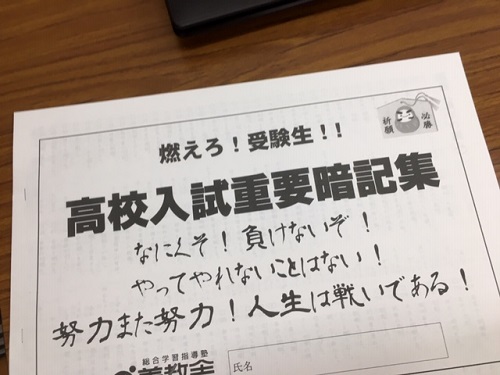 燃えろ！受験生！！
祈願 必勝
高校入試重要暗記集
なにくそ！負けないぞ！
やってやれないことはない！
努力また努力！人生は戦いである！
総合学習指導塾
氏名